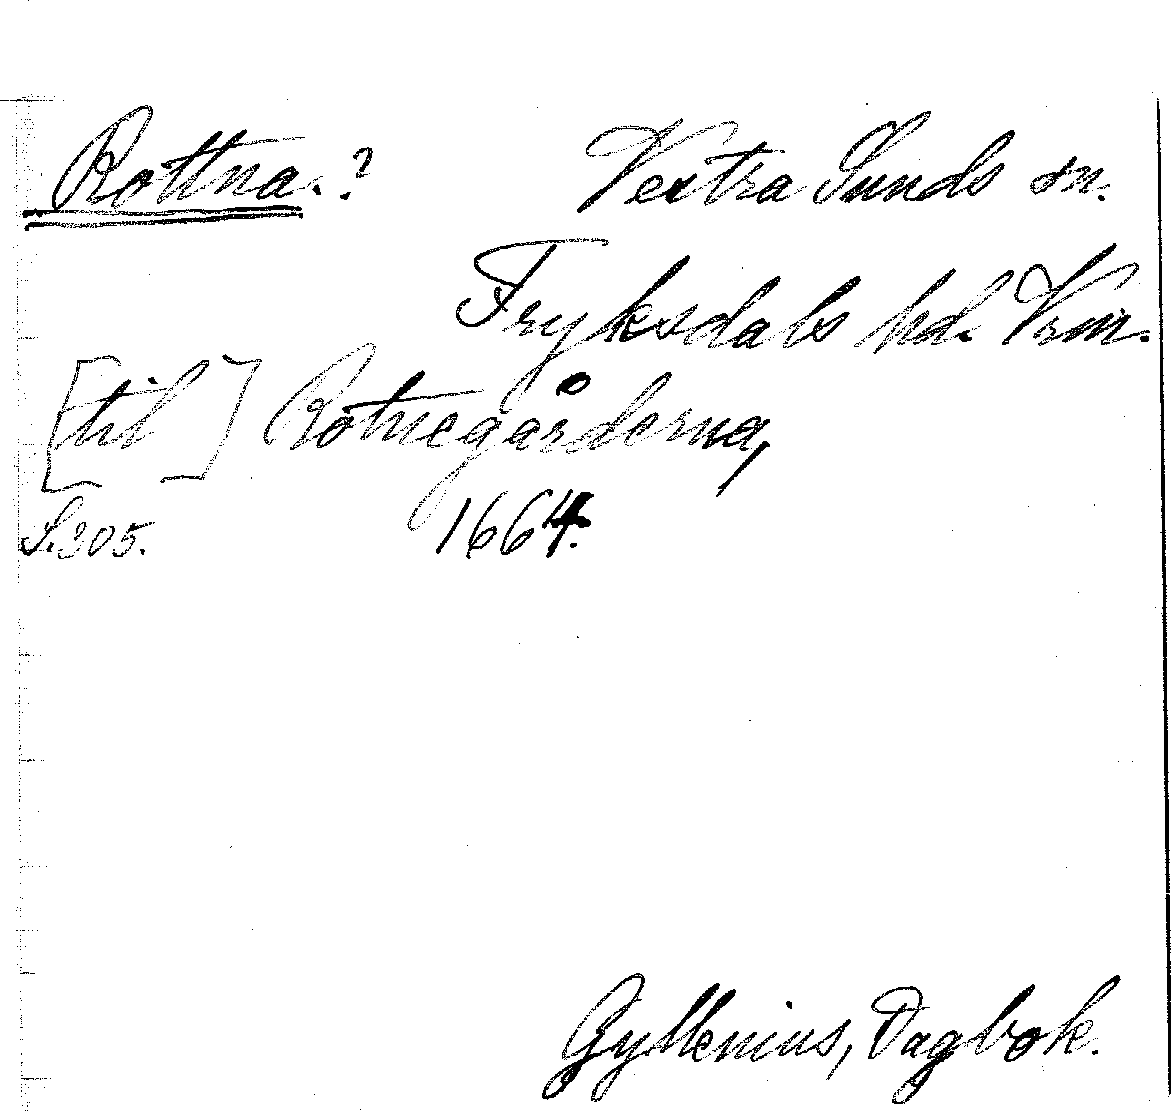 Rottna.? Vestra Sunds sn.
Fryksdals hd. Vrm.
[til] Rotnegårderna,
S.305. 1664.
Gyllenius, Dagbok.